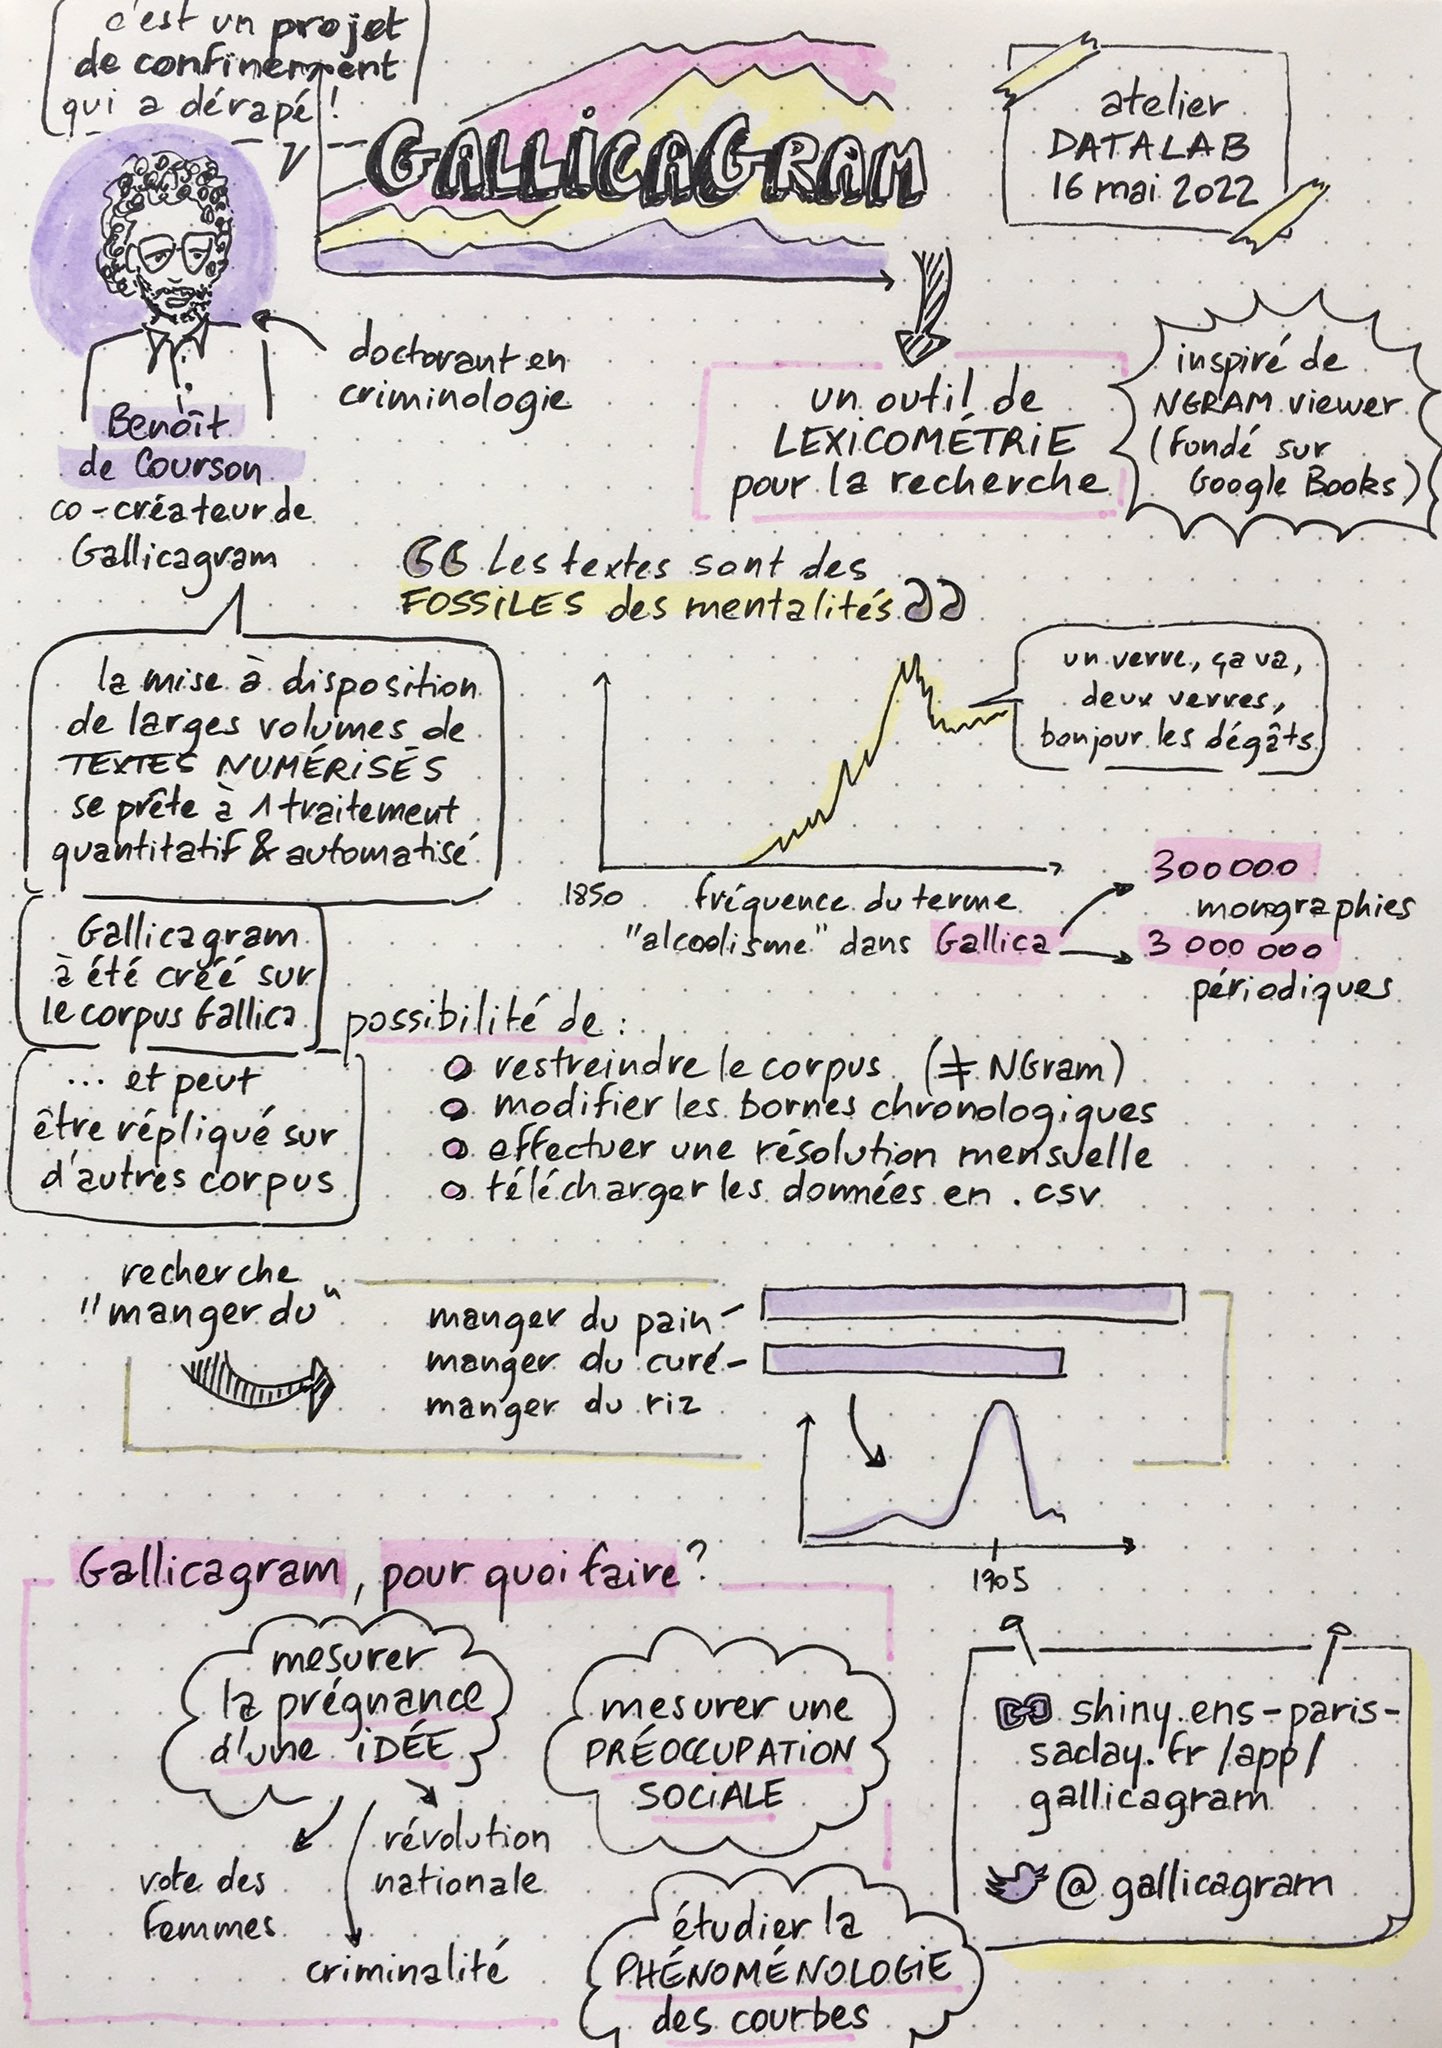 c'est un projet
de confinement
qui a dérapé !
GALLICAGRAM
atelier
DATALAB
16 mai 2022
doctorant en
criminologie
Benoît
de Courson
co-créateur de
Gallicagram
un outil de
LEXICOMÉTRIE
pour la recherche
inspiré de
NGRAM viewer
(fondé sur
Google Books)
“ Les textes sont des
FOSSILES des mentalités ”
la mise à disposition
de larges volumes de
TEXTES NUMÉRISÉS
se prête à 1 traitement
quantitatif & automatisé
un verre, ça va,
deux verres,
bonjour les dégâts
1850
fréquence du terme
"alcoolisme" dans Gallica
300 000
monographies
3 000 000
périodiques
Gallicagram
à été créé sur
le corpus Gallica
... et peut
être répliqué sur
d'autres corpus
possibilité de :
restreindre le corpus (≠ NGram)
modifier les bornes chronologiques
effectuer une résolution mensuelle
télécharger les données en .csv
recherche
"manger du"
manger du pain
manger du curé
manger du riz
1905
Gallicagram, pour quoi faire ?
mesurer
la prégnance
d'une IDÉE
vote des
femmes
criminalité
révolution
nationale
mesurer une
PRÉOCCUPATION
SOCIALE
étudier la
PHÉNOMÉNOLOGIE
des courbes
shiny.ens-paris-
saclay.fr/app/
gallicagram
@gallicagram